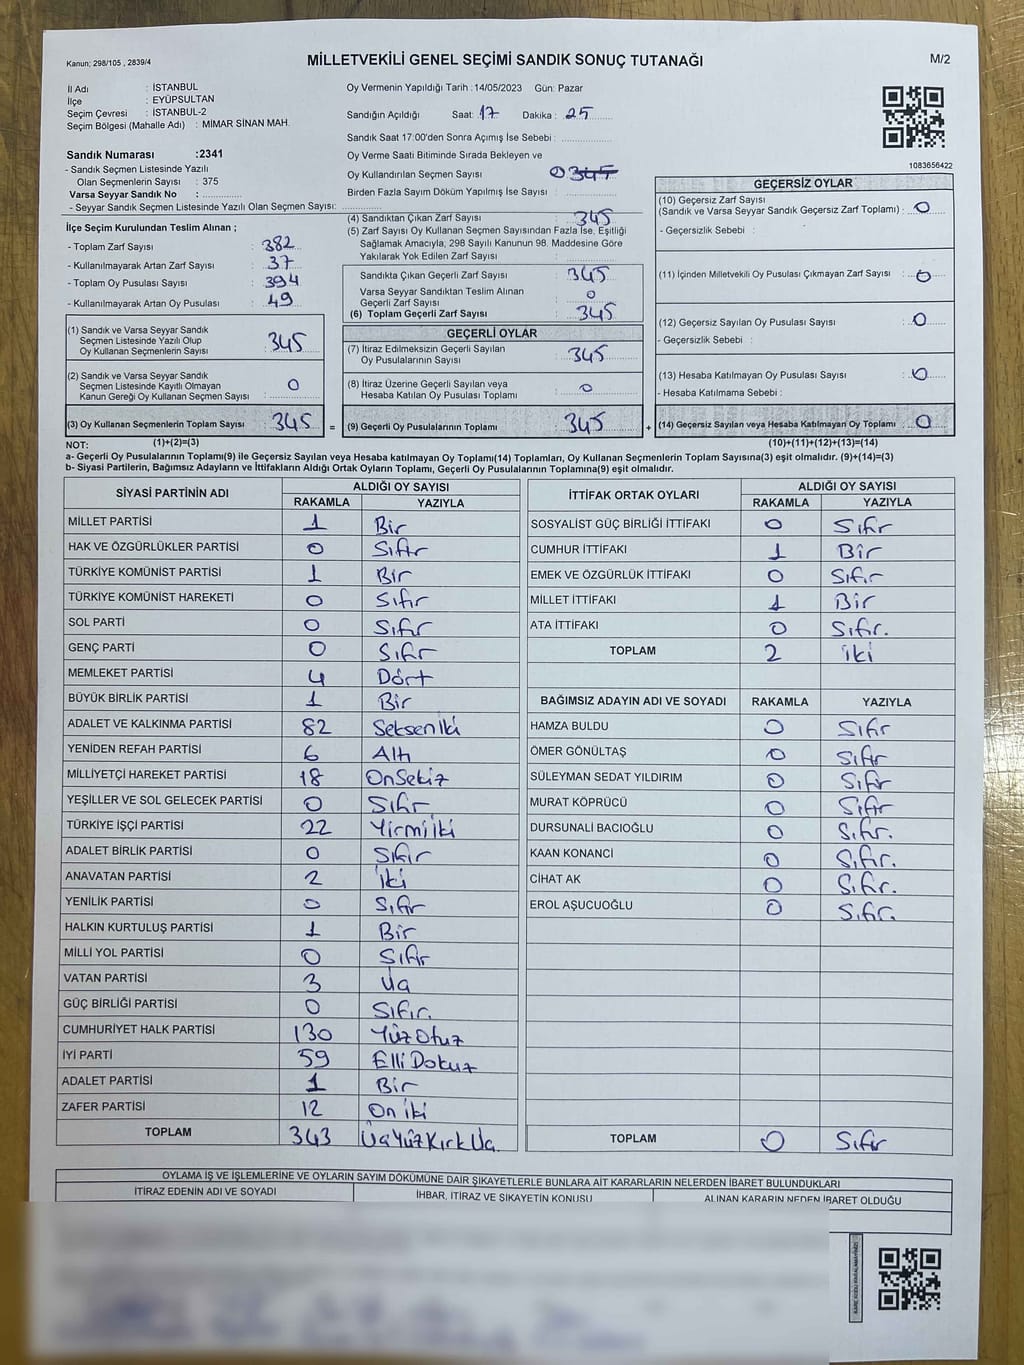 Kanun; 298/105 , 2839/4
MİLLETVEKİLİ GENEL SEÇİMİ SANDIK SONUÇ TUTANAĞI
M/2
İl Adı : İSTANBUL
İlçe : EYÜPSULTAN
Seçim Çevresi : İSTANBUL-2
Seçim Bölgesi (Mahalle Adı) : MİMAR SİNAN MAH.
Sandık Numarası :2341
- Sandık Seçmen Listesinde Yazılı
Olan Seçmenlerin Sayısı : 375
Varsa Seyyar Sandık No : ............
- Seyyar Sandık Seçmen Listesinde Yazılı Olan Seçmen Sayısı: ............
Oy Vermenin Yapıldığı Tarih :14/05/2023 Gün: Pazar
Sandığın Açıldığı Saat: 17 Dakika : 25
Sandık Saat 17:00'den Sonra Açımış İse Sebebi : ............
Oy Verme Saati Bitiminde Sırada Bekleyen ve
Oy Kullandırılan Seçmen Sayısı 0 345
Birden Fazla Sayım Döküm Yapılmış İse Sayısı : ............
1083656422
İlçe Seçim Kurulundan Teslim Alınan ;
- Toplam Zarf Sayısı : 382
- Kullanılmayarak Artan Zarf Sayısı : 37
- Toplam Oy Pusulası Sayısı : 394
- Kullanılmayarak Artan Oy Pusulası : 49
(1) Sandık ve Varsa Seyyar Sandık
Seçmen Listesinde Yazılı Olup
Oy Kullanan Seçmenlerin Sayısı : 345
(2) Sandık ve Varsa Seyyar Sandık
Seçmen Listesinde Kayıtlı Olmayan
Kanun Gereği Oy Kullanan Seçmen Sayısı : 0
(3) Oy Kullanan Seçmenlerin Toplam Sayısı 345 =
(4) Sandıktan Çıkan Zarf Sayısı : 345
(5) Zarf Sayısı Oy Kullanan Seçmen Sayısından Fazla İse, Eşitliği
Sağlamak Amacıyla, 298 Sayılı Kanunun 98. Maddesine Göre
Yakılarak Yok Edilen Zarf Sayısı :
Sandıkta Çıkan Geçerli Zarf Sayısı : 345
Varsa Seyyar Sandıktan Teslim Alınan
Geçerli Zarf Sayısı : 0
(6) Toplam Geçerli Zarf Sayısı : 345
GEÇERLİ OYLAR
(7) İtiraz Edilmeksizin Geçerli Sayılan
Oy Pusulalarının Sayısı : 345
(8) İtiraz Üzerine Geçerli Sayılan veya
Hesaba Katılan Oy Pusulası Toplamı : 0
(9) Geçerli Oy Pusulalarının Toplamı : 345 +
GEÇERSİZ OYLAR
(10) Geçersiz Zarf Sayısı
(Sandık ve Varsa Seyyar Sandık Geçersiz Zarf Toplamı) : 0
- Geçersizlik Sebebi :
(11) İçinden Milletvekili Oy Pusulası Çıkmayan Zarf Sayısı : 0
(12) Geçersiz Sayılan Oy Pusulası Sayısı : 0
- Geçersizlik Sebebi :
(13) Hesaba Katılmayan Oy Pusulası Sayısı : 0
- Hesaba Katılmama Sebebi :
(14) Geçersiz Sayılan veya Hesaba Katılmayan Oy Toplamı : 0
NOT: (1)+(2)=(3) (10)+(11)+(12)+(13)=(14)
a- Geçerli Oy Pusulalarının Toplamı(9) ile Geçersiz Sayılan veya Hesaba katılmayan Oy Toplamı(14) Toplamları, Oy Kullanan Seçmenlerin Toplam Sayısına(3) eşit olmalıdır. (9)+(14)=(3)
b- Siyasi Partilerin, Bağımsız Adayların ve İttifakların Aldığı Ortak Oyların Toplamı, Geçerli Oy Pusulalarının Toplamına(9) eşit olmalıdır.
SİYASİ PARTİNİN ADI ALDIĞI OY SAYISI
RAKAMLA YAZIYLA
MİLLET PARTİSİ 1 Bir
HAK VE ÖZGÜRLÜKLER PARTİSİ 0 Sıfır
TÜRKİYE KOMÜNİST PARTİSİ 1 Bir
TÜRKİYE KOMÜNİST HAREKETİ 0 Sıfır
SOL PARTİ 0 Sıfır
GENÇ PARTİ 0 Sıfır
MEMLEKET PARTİSİ 4 Dört
BÜYÜK BİRLİK PARTİSİ 1 Bir
ADALET VE KALKINMA PARTİSİ 82 Sekseniki
YENİDEN REFAH PARTİSİ 6 Altı
MİLLİYETÇİ HAREKET PARTİSİ 18 OnSekiz
YEŞİLLER VE SOL GELECEK PARTİSİ 0 Sıfır
TÜRKİYE İŞÇİ PARTİSİ 22 Yirmiiki
ADALET BİRLİK PARTİSİ 0 Sıfır
ANAVATAN PARTİSİ 2 iki
YENİLİK PARTİSİ 0 Sıfır
HALKIN KURTULUŞ PARTİSİ 1 Bir
MİLLİ YOL PARTİSİ 0 Sıfır
VATAN PARTİSİ 3 Üç
GÜÇ BİRLİĞİ PARTİSİ 0 Sıfır.
CUMHURİYET HALK PARTİSİ 130 YüzOtuz
İYİ PARTİ 59 ElliDokuz
ADALET PARTİSİ 1 Bir
ZAFER PARTİSİ 12 On iki
TOPLAM 343 ÜçYüzKırkÜç.
İTTİFAK ORTAK OYLARI ALDIĞI OY SAYISI
RAKAMLA YAZIYLA
SOSYALİST GÜÇ BİRLİĞİ İTTİFAKI 0 Sıfır
CUMHUR İTTİFAKI 1 Bir
EMEK VE ÖZGÜRLÜK İTTİFAKI 0 Sıfır
MİLLET İTTİFAKI 1 Bir
ATA İTTİFAKI 0 Sıfır.
TOPLAM 2 iki
BAĞIMSIZ ADAYIN ADI VE SOYADI RAKAMLA YAZIYLA
HAMZA BULDU 0 Sıfır
ÖMER GÖNÜLTAŞ 0 Sıfır
SÜLEYMAN SEDAT YILDIRIM 0 Sıfır
MURAT KÖPRÜCÜ 0 Sıfır
DURSUNALİ BACIOĞLU 0 Sıfır.
KAAN KONANCİ 0 Sıfır.
CİHAT AK 0 Sıfır.
EROL AŞUCUOĞLU 0 Sıfır.
TOPLAM 0 Sıfır
OYLAMA İŞ VE İŞLEMLERİNE VE OYLARIN SAYIM DÖKÜMÜNE DAİR ŞİKAYETLERLE BUNLARA AİT KARARLARIN NELERDEN İBARET BULUNDUKLARI
İTİRAZ EDENİN ADI VE SOYADI İHBAR, İTİRAZ VE ŞİKAYETİN KONUSU ALINAN KARARIN NEDEN İBARET OLDUĞU